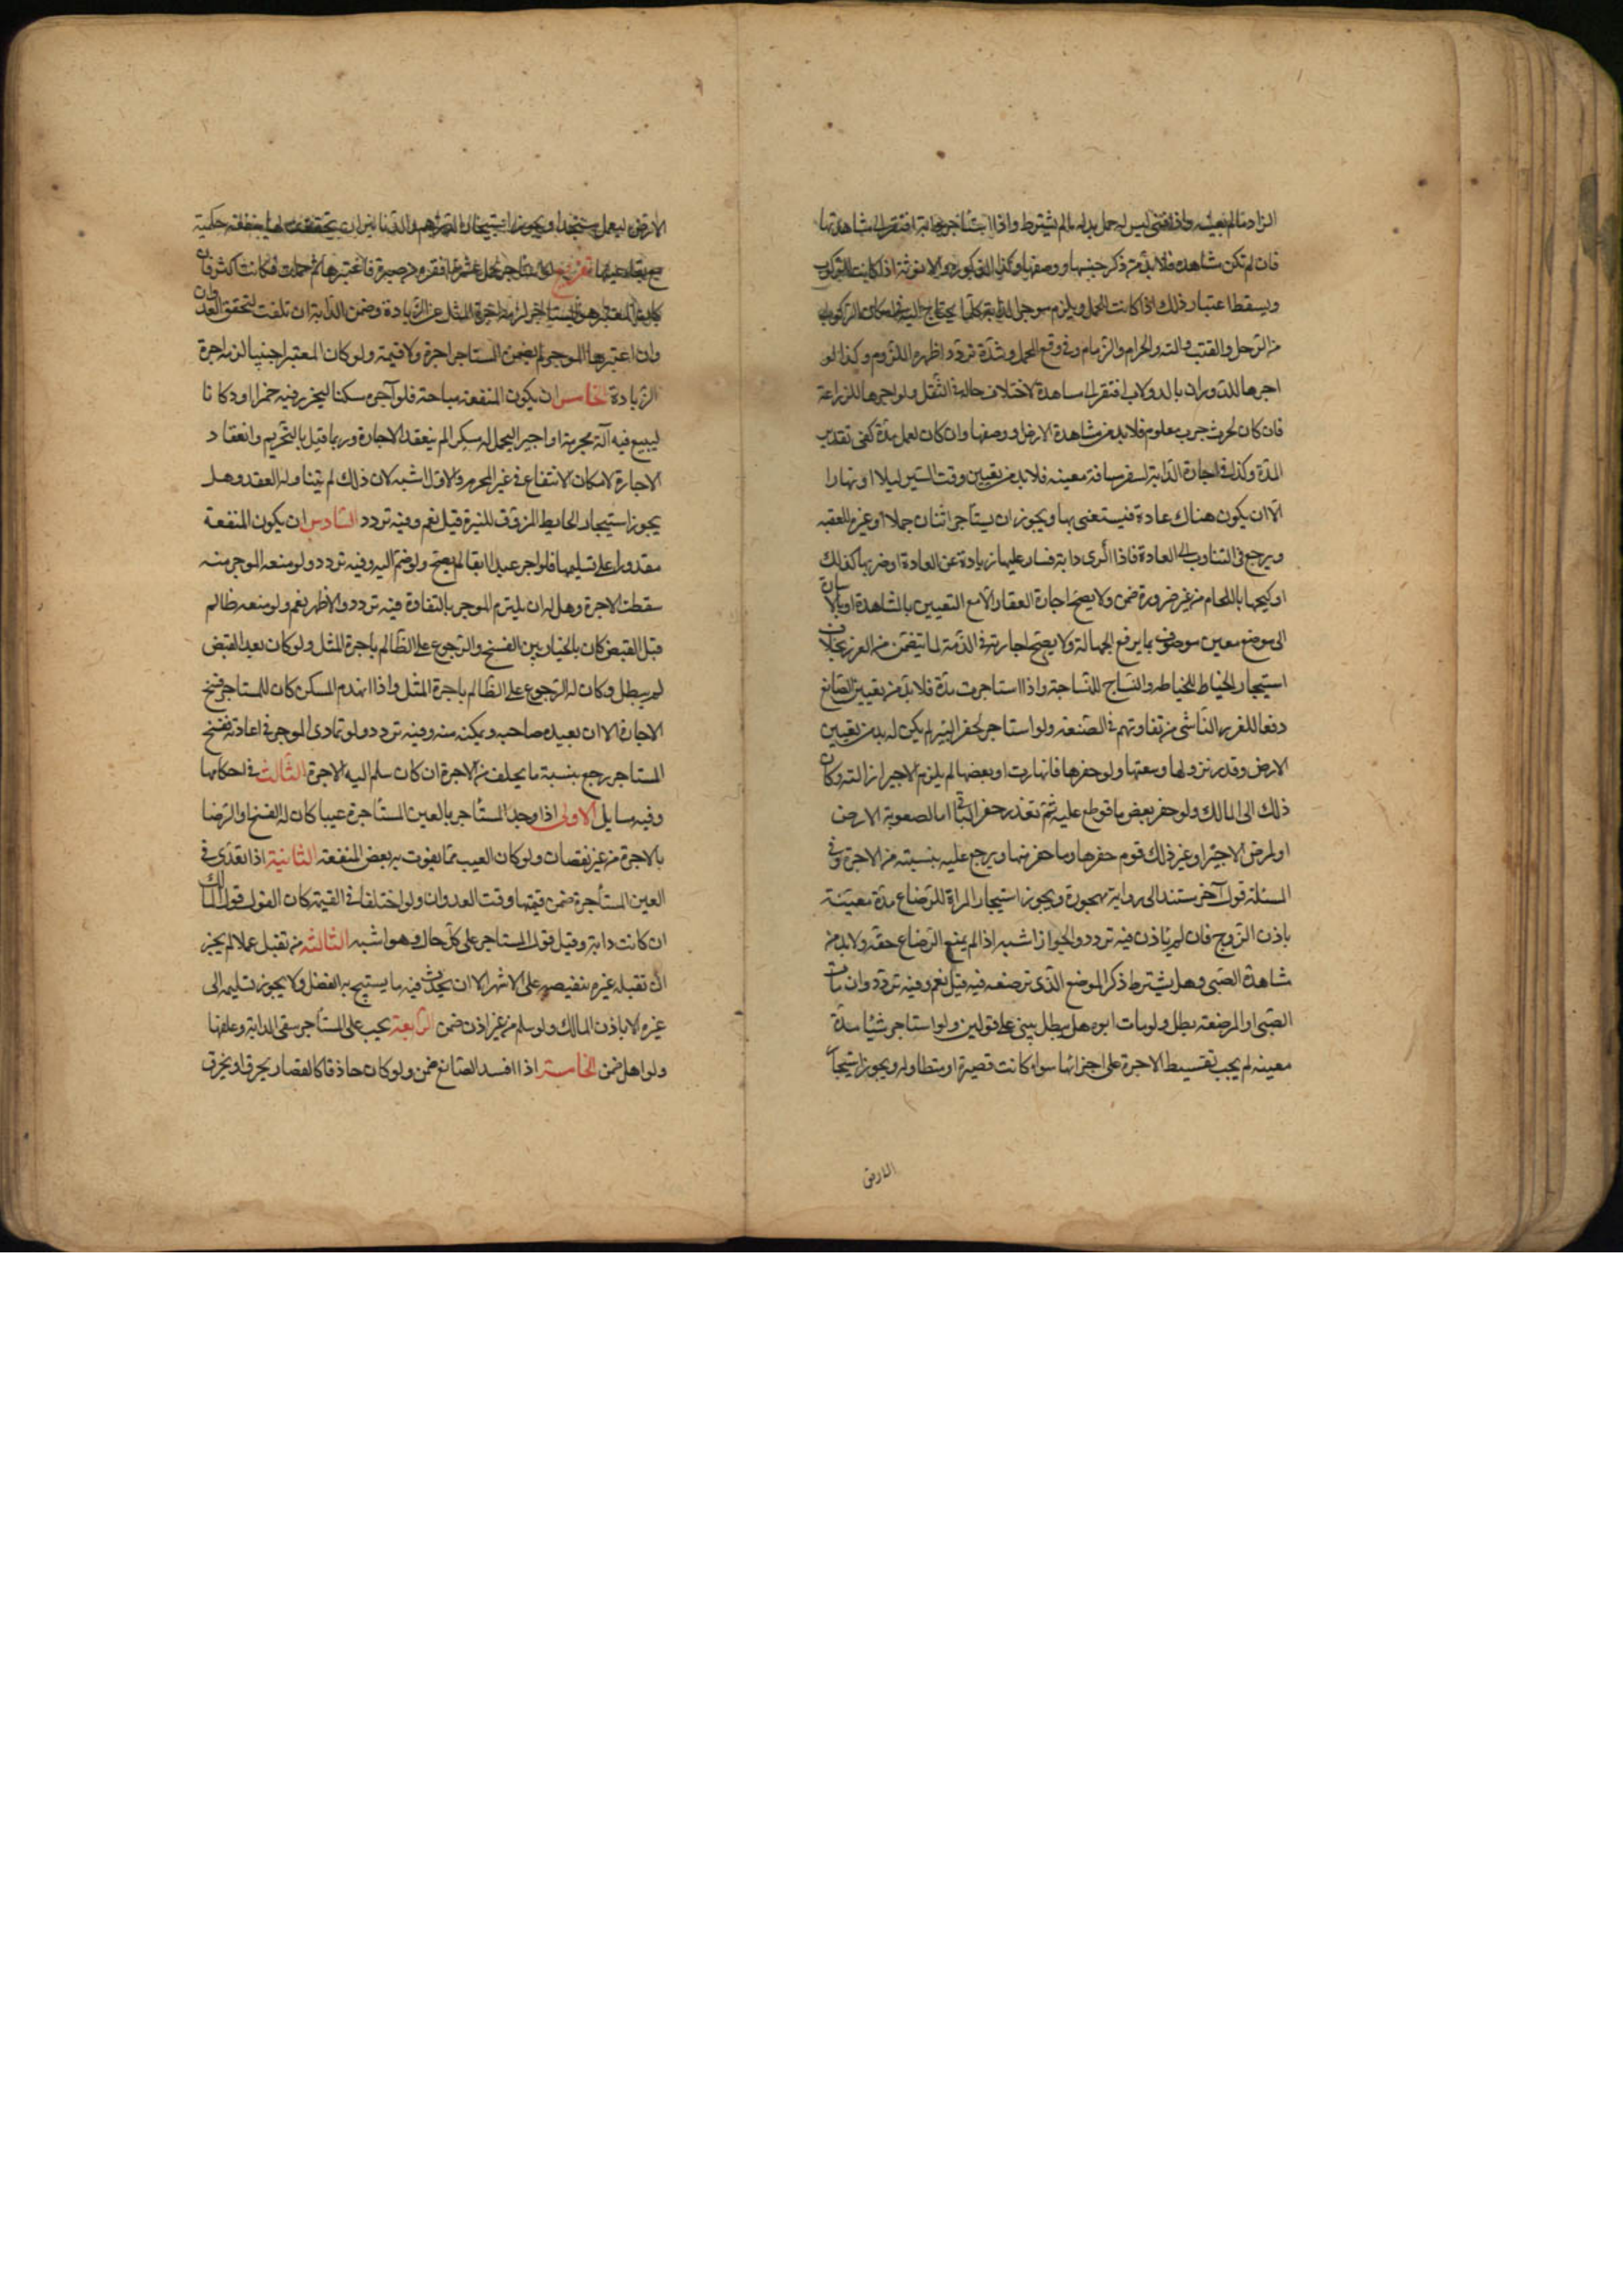 الزاد مالم يعينه واذا فنى ليس له حمل بدله مالم يشترط واذا استاجر دابة افتقر الى مشاهدتها
فان لم تكن مشاهدة فلابد من ذكر جنسها ووصفها وكذا الذكورة والانوثة اذا كانت للركوب
ويسقط اعتبار ذلك اذا كانت للحمل ويلزم موجر الدابة كلما يحتاج اليه فى امكان الركوب
من الرحل والقتب والته والحزام والزمام وفى رفع المحمل وشده تردد اظهره اللزوم وكذا لو
اجرها للدوران بالدولاب افتقر الى مشاهدة لاختلاف حاله فى الثقل ولو اجرها للزراعة
فان كان لحرث جريب معلوم فلابد من مشاهدة الارض ووصفها وان كان لعمل مدة كفى تقدير
المدة وكذا فى اجارة الدابة لسفر مسافة معينه فلابد من تعيين وقت السير ليلا او نهارا
الا ان يكون هناك عادة فيستغنى بها ويجوز ان يستأجر اثنان جملا او غيره للعقبه
ويرجع فى التناوب الى العادة فاذا اكرى دابة فسار عليها زيادة عن العادة او ضربها كذلك
او كبحها باللجام من غير ضرورة ضمن ولا يصح اجارة العقار الا مع التعيين بالمشاهدة او بالاشارة
الى موضع معين موصوف بما يرفع الجهالة ولا يصح اجارته فى الذمة لما يتضمن من الغرر بخلاف
استيجار الخياط للخياطه والنساج للنساجة واذا استاجره مدة فلابد من تعيين الصانع
دفعا للغرر الناشى من تفاوتهم فى الصنعه ولو استاجر لحفر البئر لم يكن له بد من تعيين
الارض وقدر نزولها وسعتها ولو حفرها فانهارت او بعضها لم يلزم الاجير ازالته وكان
ذلك الى المالك ولو حفر بعض ما قوطع عليه ثم تعذر حفر الباقى اما لصعوبة الارض
او لمرض الاجير او غير ذلك قوم حفرها وما حفر منها ويرجع عليه بنسبته من الاجرة وفى
المسئلة قول آخر مستند الى رواية مهجورة ويجوز استيجار المراة للرضاع مدة معينة
باذن الزوج فان لم ياذن فيه تردد والجواز اشبه اذا لم يمنع الرضاع حقه ولابد من
مشاهدة الصبى وهل يشترط ذكر الموضع الذى ترضعه فيه قيل نعم وفيه تردد وان مات
الصبى او المرضعة بطل ولو مات ابوه هل يبطل يبنى على قولين ولو استاجر شيئا مدة
معينه لم يجب تقسيط الاجرة على اجزائها سواء كانت قصيرة او متطاولة ويجوز استيجار
الارض
الارض ليعمل مسجدا ويجوز استيجار الدراهم والدنانير ان تحققت لها منفعة حكمية
مع بقاء عينها تفريع لو استاجر لحمل عشرة اقفزة من صبرة فاعتبرها ثم حملت فكانت اكثر فان
كان المعتبر هو المستاجر لزمه اجرة المثل عن الزيادة وضمن الدابة ان تلفت لتحقق العدوان
وان اعتبرها الموجر لم يضمن المستاجر اجرة ولا قيمة ولو كان المعتبر اجنبيا لزمه اجرة
الزيادة الخامس ان يكون المنفعة مباحة فلو آجره مسكنا ليحرز فيه خمرا او دكانا
ليبيع فيه آلة محرمة او اجيرا ليحمل له مسكرا لم ينعقد الاجارة وربما قيل بالتحريم وانعقاد
الاجارة لامكان الانتفاع فى غير المحرم والاول اشبه لان ذلك لم يتناوله العقد وهل
يجوز استيجار الحايط المزوق للنزة قيل نعم وفيه تردد السادس ان يكون المنفعة
مقدورا على تسليمها فلو اجر عبدا ابقا لم يصح ولو ضم اليه وفيه تردد ولو منعه الموجر منه
سقطت الاجرة وهل له ان يلتزم الموجر بالتفاوة فيه تردد والاظهر نعم ولو منعه ظالم
قبل القبض كان بالخيار بين الفسخ والرجوع على الظالم باجرة المثل ولو كان بعد القبض
لم يبطل وكان له الرجوع على الظالم باجرة المثل واذا انهدم المسكن كان للمستاجر فسخ
الاجارة الا ان يعيده صاحبه ويمكنه منه وفيه تردد ولو تمادى الموجر فى اعادته ففسخ
المستاجر رجع بنسبة ما يخلف من الاجرة ان كان سلم اليه الاجرة الثالث فى احكامها
وفيه مسايل الاولى اذا وجد المستاجر بالعين المستاجرة عيبا كان له الفسخ او الرضا
بالاجرة من غير نقصان ولو كان العيب مما يفوت به بعض المنفعة الثانية اذا تعدى فى
العين المستأجرة ضمن قيمتها وقت العدوان ولو اختلفا فى القيمة كان القول قول المالك
ان كانت دابة وقيل قول المستاجر على كل حال وهو اشبه الثالثة من تقبل عملا لم يجز
ان تقبله غيره بنقيصه على الاشهر الا ان يحدث فيه ما يستبيح به الفضل ولا يجوز تسليمه الى
غيره الا باذن المالك ولو سلم من غير اذن ضمن الرابعة يجب على المستأجر سقى الدابة وعلفها
ولو اهمل ضمن الخامسة اذا افسد الصانع ضمن ولو كان حاذقا كالقصار يحرق او يخرق